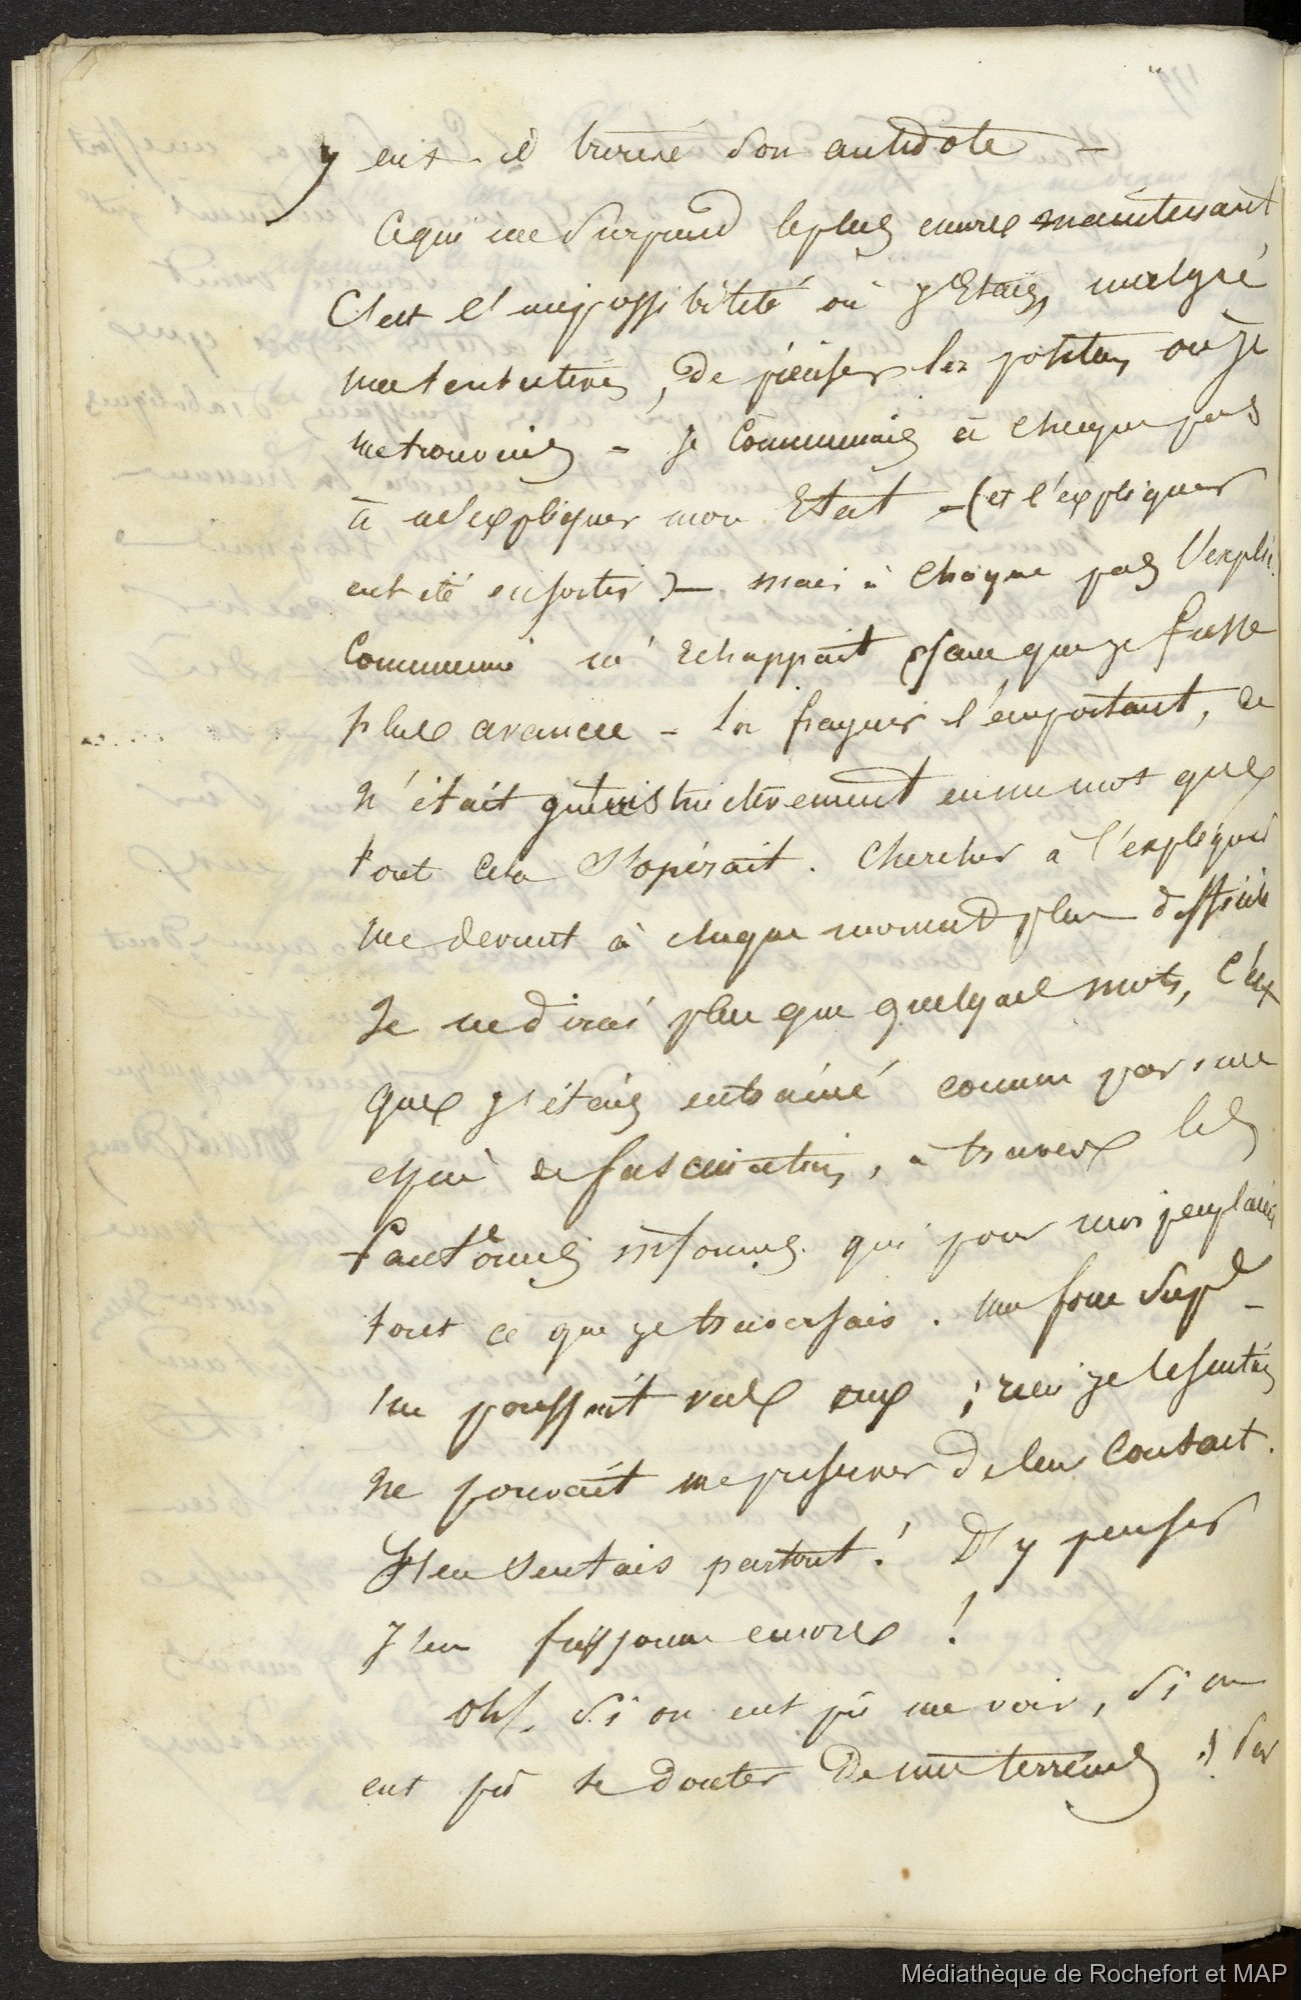 y eut-il trouvé son antidote –
Ce qui me surprend le plus encore maintenant
C'est l'impossibilité où j'Etais, malgré
mes tentatives, de préciser les positions où je
me trouvais – Je Commençais à chaque pas
à m'expliquer mon Etat – (et l'expliquer
eut été en sortir) – mais à Chaque pas l'expli.
Commencée m'Echappait sans que je fusse
plus avancé – la frayeur l'emportant, ce
n'était qu'instinctivement en un mot que
tout cela s'opérait. Chercher à l'expliquer
me devient à chaque moment plus difficile
Je ne dirai plus que quelques mots, C'est
que j'étais entrainé comme par une
espèce de fascination, à travers les
fantômes informes qui pour moi peuplaient
tout ce que je traversais. une force Sup
me poussait vers eux ; rien je le sentais
ne pouvait me préserver de leur Contact.
J'en sentais partout ! D'y penser
J'en frissonne encore !
Oh! Si on eut pû me voir, Si on
eut pû se douter De mes terreurs !
Médiathèque de Rochefort et MAP